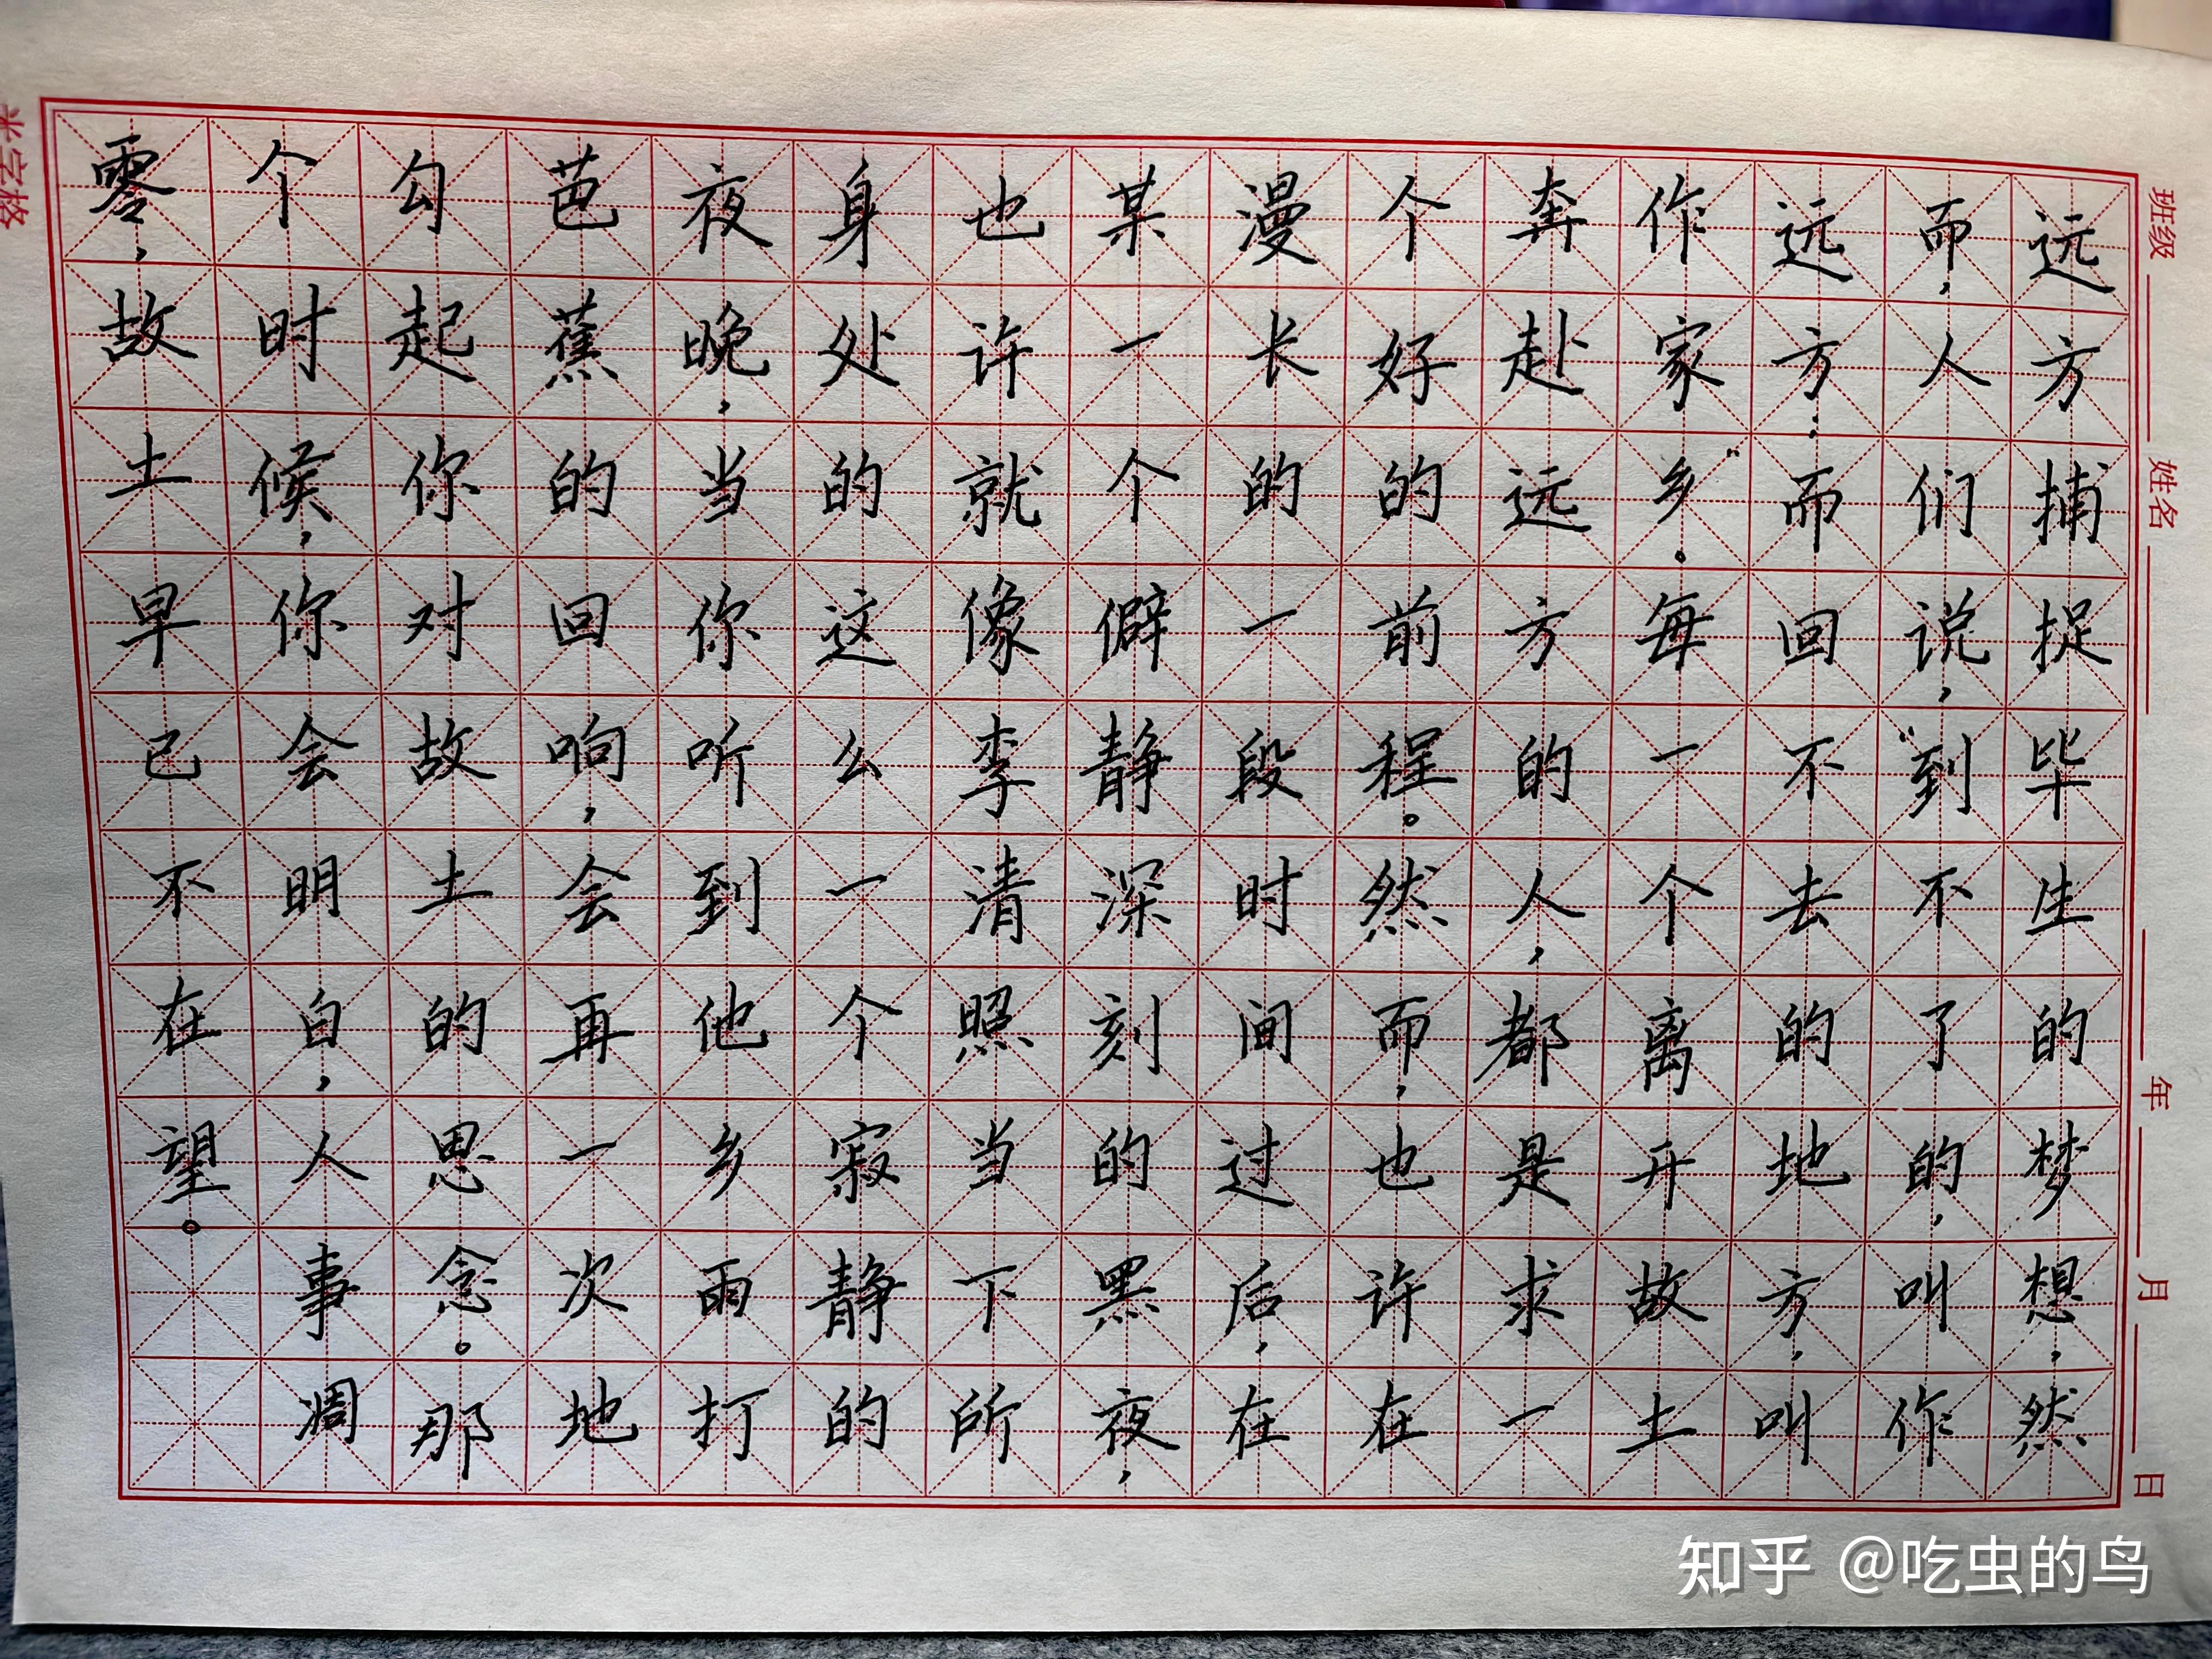 班级 姓名 年 月 日
远方捕捉毕生的梦想，然
而，人们说，“到不了的，叫作
远方；而回不去的地方，叫
作家乡”。每一个离开故土
奔赴远方的人，都是求一
个好的前程。然而，也许在
漫长的一段时间过后，在
某一个僻静深刻的黑夜，
也许就像李清照当下所
身处的这么一个寂静的
夜晚，当你听到他乡雨打
芭蕉的回响，会再一次地
勾起你对故土的思念。那
个时候，你会明白，人事凋
零，故土早已不在望。
米字格
知乎 @吃虫的鸟